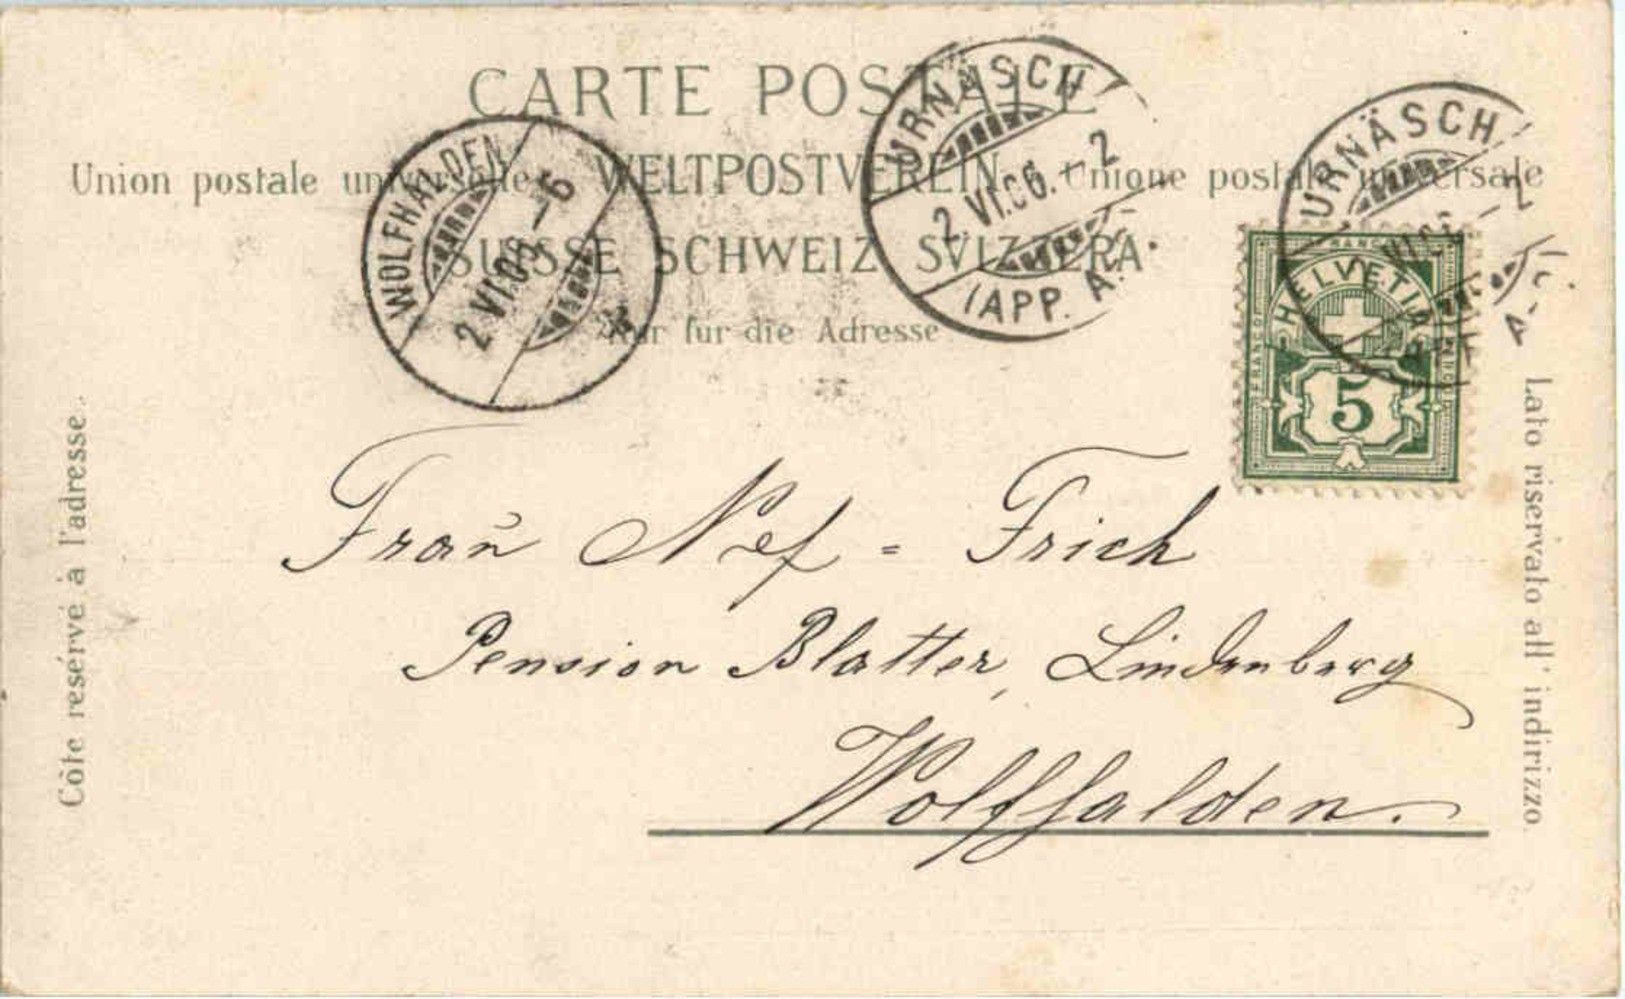 CARTE POSTALE
Union postale universelle. WELTPOSTVEREIN. Unione postale universale
SUISSE SCHWEIZ SVIZZERA
Nur für die Adresse
WOLFHALDEN
2 VI.06 -6
URNÄSCH
2. VI.06. - 2
(APP. A.
URNÄSCH
FRANCO
HELVETIA
5
Côté resérvé à l'adresse.
Lato riservato all' indirizzo.
Frau Nef = Frich
Pension Blatter, Lindenberg
Wolfhalden.